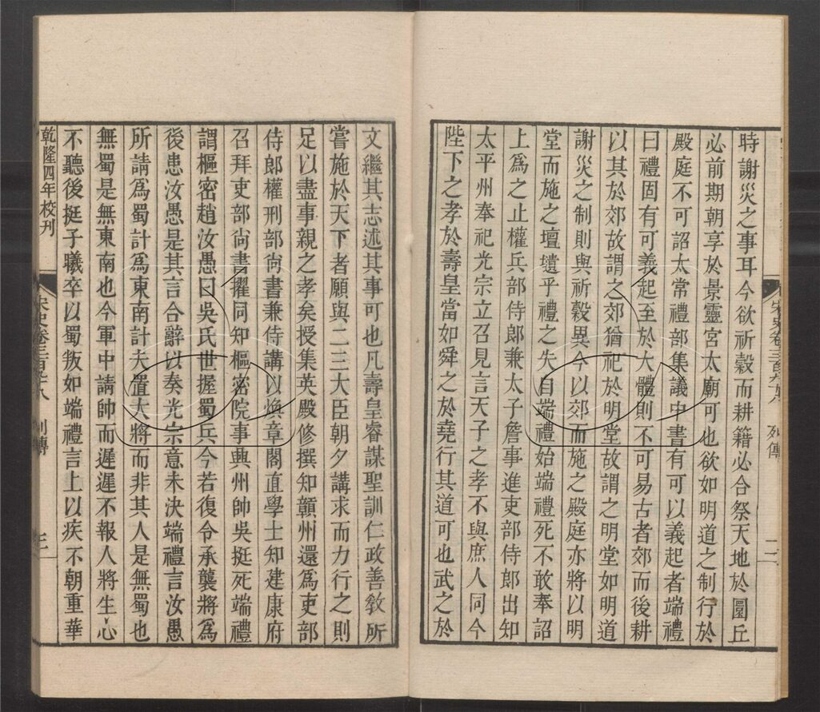 時謝災之事耳今欲祈穀而耕籍必合祭天地於圜丘
必前期朝享於景靈宮太廟可也欲如明道之制行於
殿庭不可詔太常禮部集議中書有可以義起者端禮
曰禮固有可義起至於大體則不可易古者郊而後耕
以其於郊故謂之郊猶祀於明堂故謂之明堂如明道
謝災之制則與祈穀異今以郊而施之殿庭亦將以明
堂而施之壇壝乎禮之失自端禮始端禮死不敢奉詔
上爲之止權兵部侍郎兼太子詹事進吏部侍郎出知
太平州奉祀光宗立召見言天子之孝不與庶人同今
陛下之孝於壽皇當如舜之於堯行其道可也武之於
宋史卷三百九十八 列傳 二
文繼其志述其事可也凡壽皇睿謀聖訓仁政善敎所
嘗施於天下者願與二三大臣朝夕講求而力行之則
足以盡事親之孝矣授集英殿修撰知贛州還爲吏部
侍郎權刑部尚書兼侍講以煥章閣直學士知建康府
召拜吏部尚書擢同知樞密院事興州帥吳挺死端禮
謂樞密趙汝愚曰吳氏世握蜀兵今若復令承襲將爲
後患汝愚是其言合辭以奏光宗意未決端禮言汝愚
所請爲蜀計爲東南計夫置大將而非其人是無蜀也
無蜀是無東南也今軍中請帥而遲遲不報人將生心
不聽後挺子曦卒以蜀叛如端禮言上以疾不朝重華
乾隆四年校刊
宋史卷三百九十八 列傳